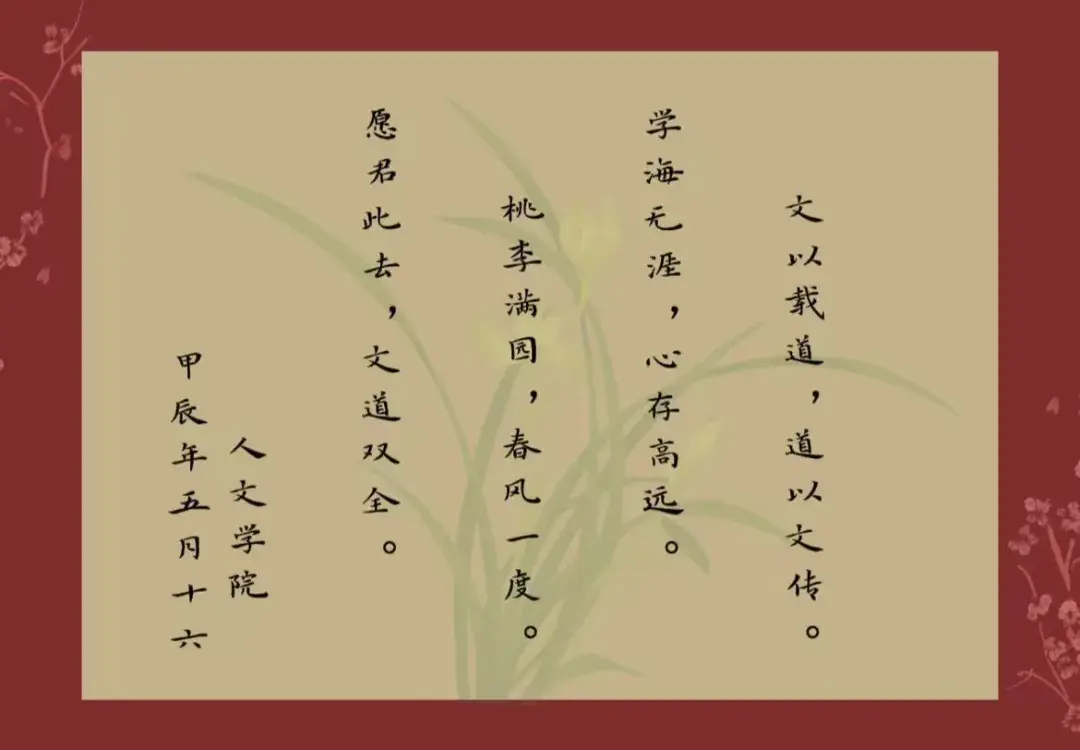 文以载道，道以文传。
学海无涯，心存高远。
桃李满园，春风一度。
愿君此去，文道双全。
人文学院
甲辰年五月十六